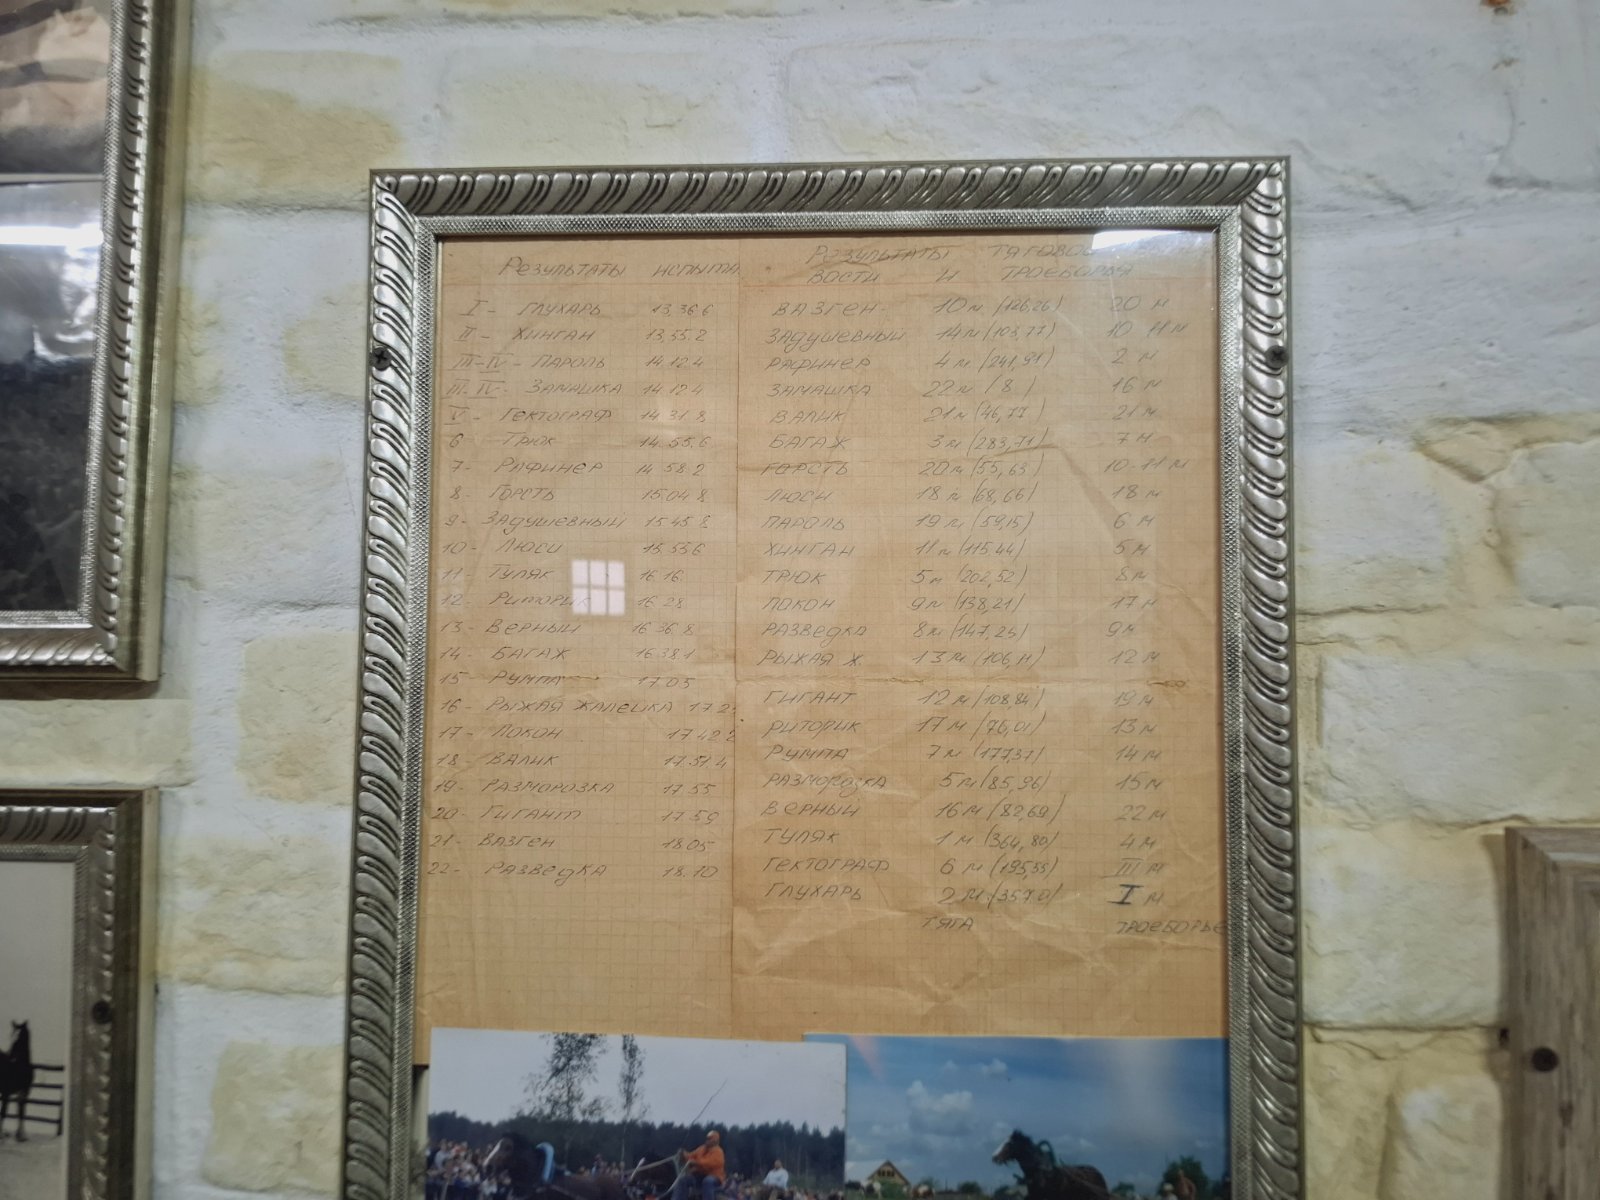 Результаты испыта
I - Глухарь 13,36 6
II - Хинган 13,55.2
III-IV - Пароль 14.12.4
III-IV - Замашка 14.12.4
V - Гектограф 14 31.8
6 Трюк 14.55.6
7 - Рафинер 14 58 2
8 - Горсть 15.04 8
9 - Задушевный 15 45 8
10 - Люси 15.55 6
11 - Туляк 16 16
12 - Риторик 16.28
13 - Верный 16 36 8
14 - Багаж 16 38 1
15 - Румпа 17.05
16 - Рыжая Жалейка 17.2
17 - Локон 17.42 2
18 - Валик 17.51 4
19 - Разморозка 17.55
20 - Гигант 17.59
21 - Вазген 18.05
22 - Разведка 18.10
Результаты тягово
вости и троеборья
Вазген - 10 м (126,26) 20 м
Задушевный 14 м (103,77) 10 11 м
Рафинер 4 м (241,91) 2 м
Замашка 22 м (8) 16 м
Валик 21 м (46,77) 21 м
Багаж 3 м (283,71) 7 м
Горсть 20 м (55,63) 10-11 м
Люси 18 м (68,66) 18 м
Пароль 19 м (59,15) 6 м
Хинган 11 м (115,44) 5 м
Трюк 5 м (202,52) 8 м
Локон 9 м (138,21) 17 м
Разведка 8 м (147,26) 9 м
Рыжая Ж. 13 м (106,11) 12 м
Гигант 12 м (108,84) 19 м
Риторик 17 м (76,01) 13 м
Румпа 7 м (177,37) 14 м
Разморозка 5 м (85,96) 15 м
Верный 16 м (82,69) 22 м
Туляк 1 м (364,80) 4 м
Гектограф 6 м (195,55) III м
Глухарь 2 м (357.0) I м
Тяга Троеборье